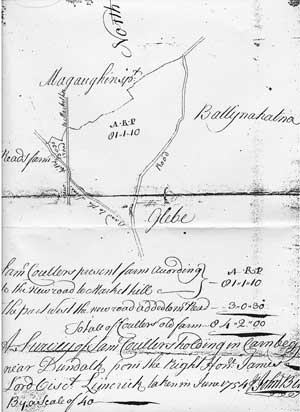 North
Magaughin spt.
A·R·P
01-1-10
Ballynahatna
Reads farm
Road
Road to the
Glebe
Sam Coulters present farm according
to the new road to Market hill
A·R·P
01-1-10
the part west the new road added to Reads
3-0-30
Totale of Coulters old farm
4-2-00
A Survey of Sam Coulters holding in Carnbeg
near Dundalk from the Right Honr. James
Lord Visct. Limerick taken in June 1754
By a scale of 40